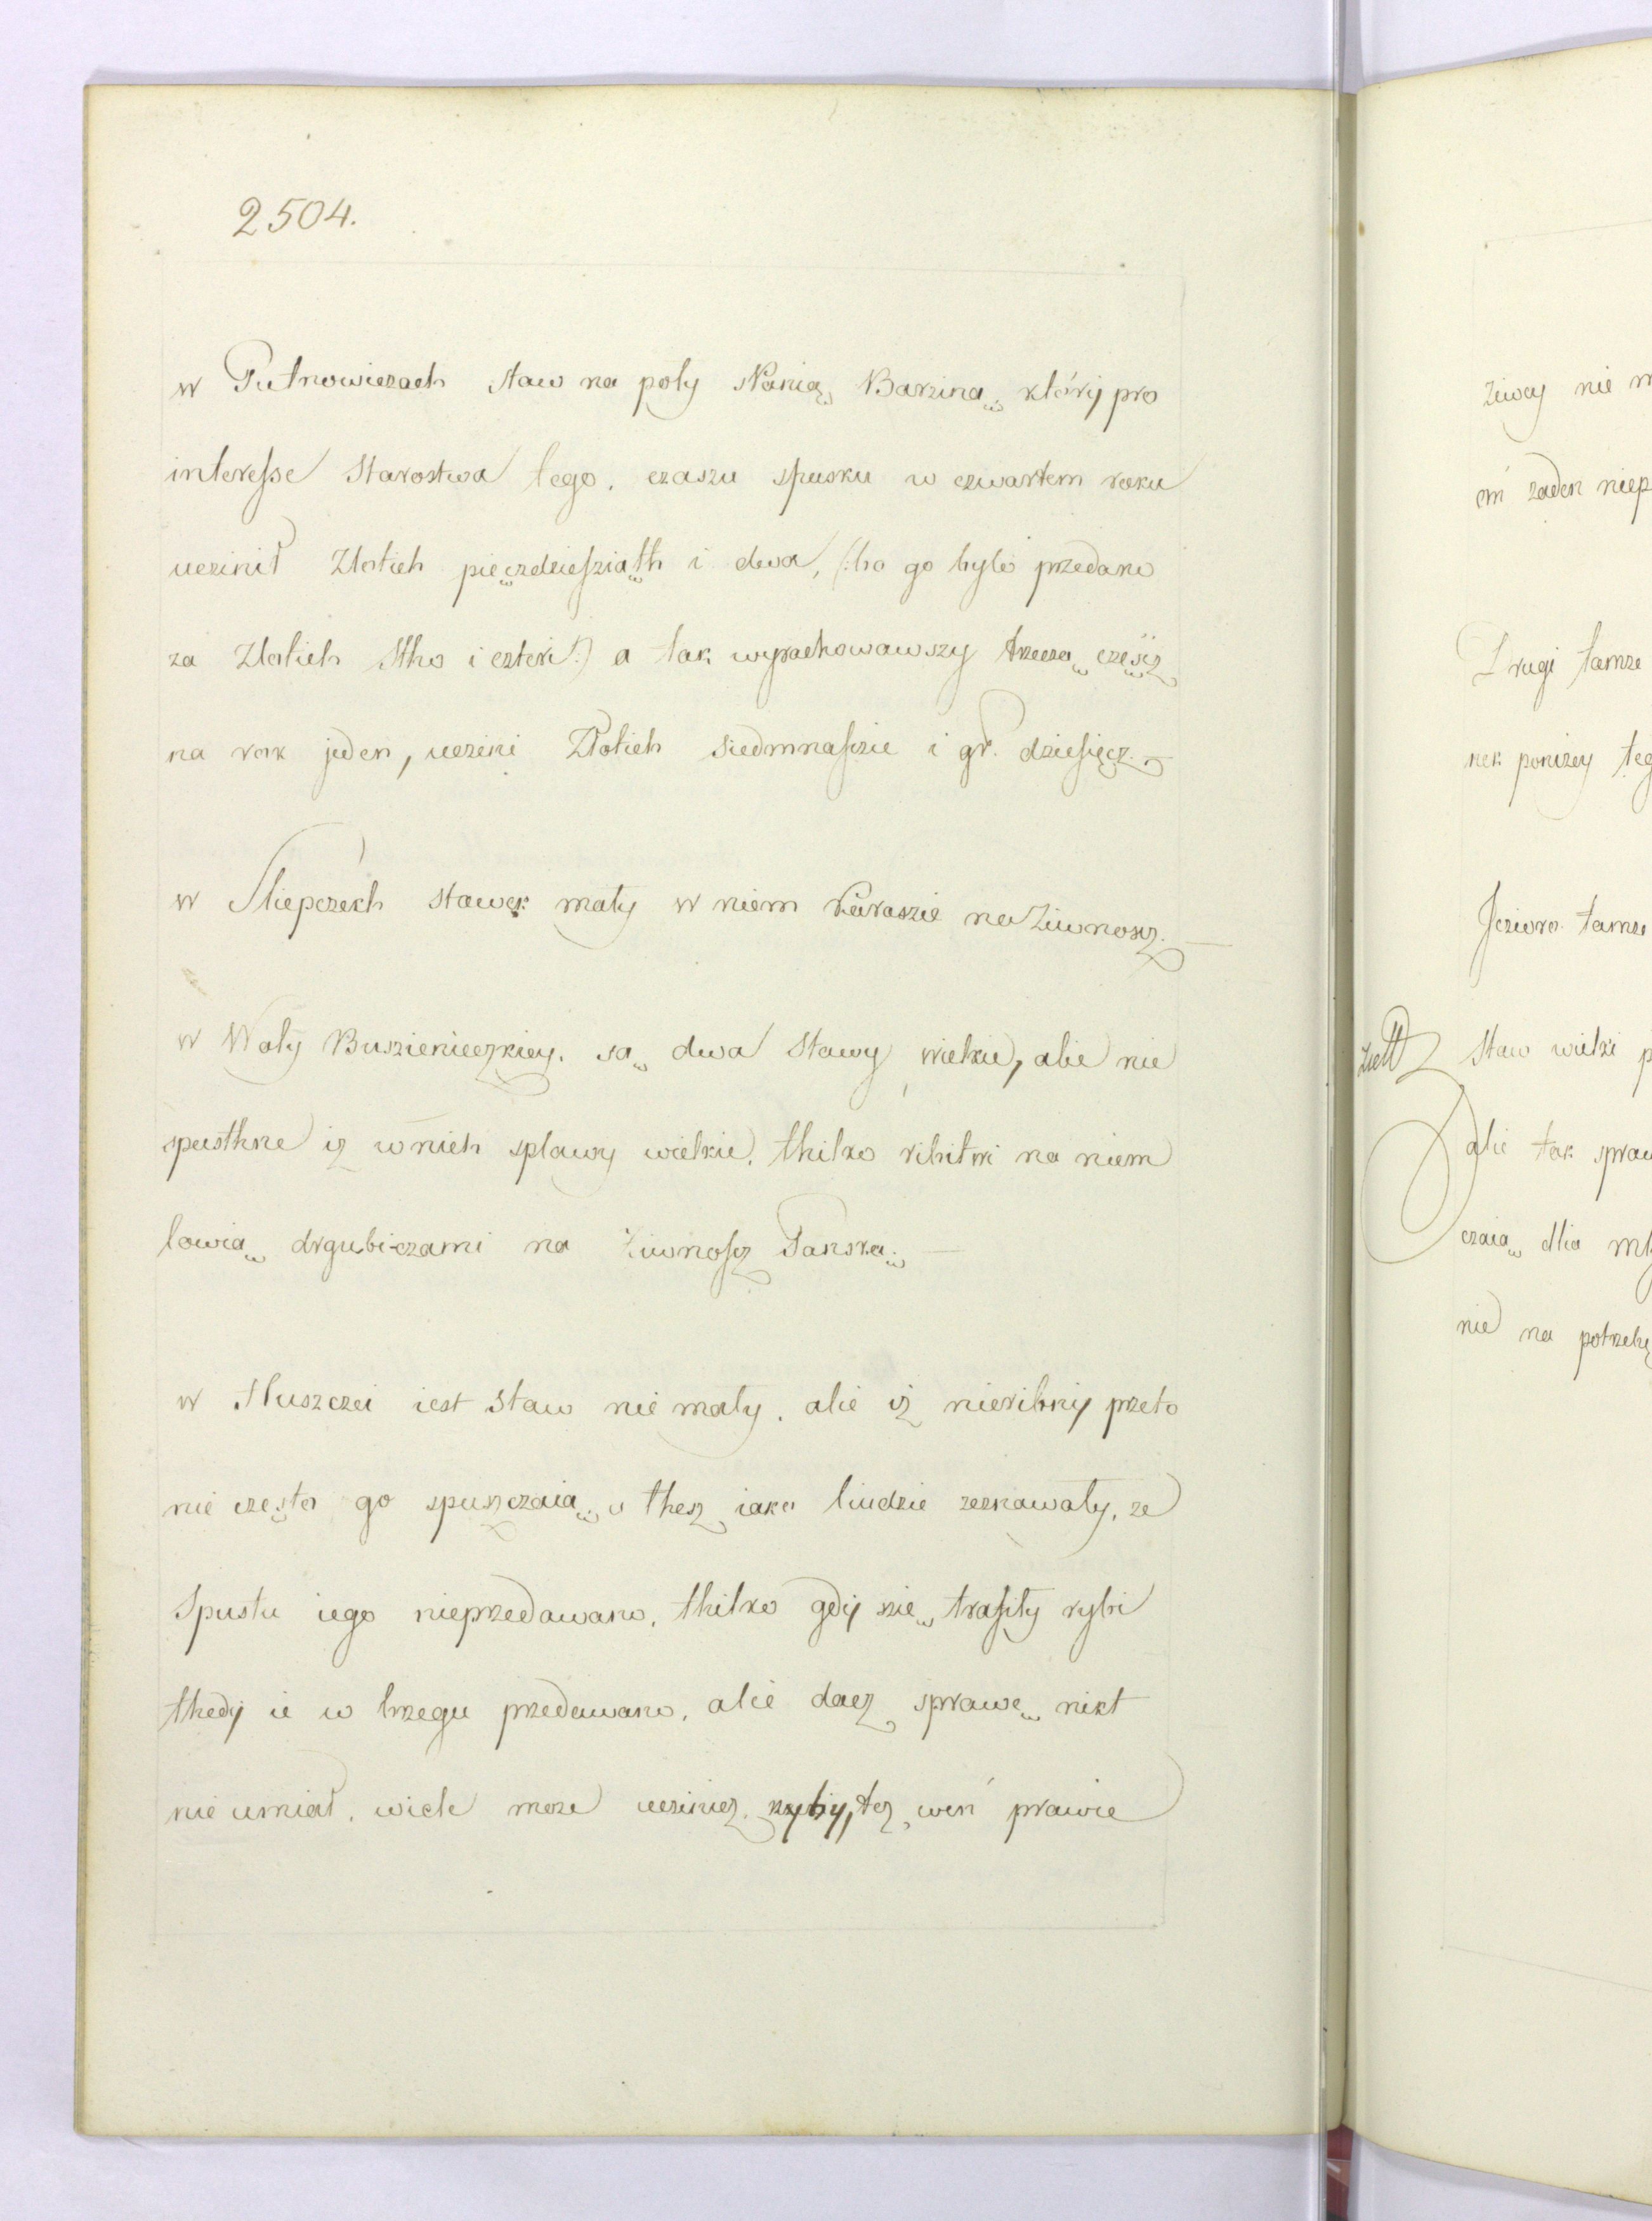 2504.
w Putnowiczach staw na poły s Panią Barziną, który pro
interesse Starostwa tego, czaszu spusku w czwartem roku
uczinił Złotich pięczdziesziąth i dwa, (: bo go bylo przedano
za Złotich Stho i czteri :) a tak wyrachowawszy trzeczą częscz
na rok jeden, uczini Złotich siedmnascie i gr. dziesięcz.
w Sliepczech stawek mały w niem karaszie na ziwnoscz.
w Woly Buszienieczkiey. są dwa Stawy wielkie, alie nie
spusthne iz w nich splawy wielkie, thilko ribitwi na niem
lowią drgubiczami na ziwnoscz Panską.
w Tluszczei iest Staw nie mały, alie iz nieribniy przeto
nie często go spuszczaią, u thesz iako liudzie zeznawaly, ze
Spustu iego nieprzedawano, thilko gdij szie trafiły rybi
thedij ie w brzegu przedawano, alie dacz sprawę nikt
nie umiał, wiele moze uczinicz, rybiy, tez weń prawie
ziwey nie
em zaden niep
Drugi tamze
nek ponizey teg
Jezioro tamze
Staw wielki p
alie tak spraw
czaią dlia mł
nie na potrzebę